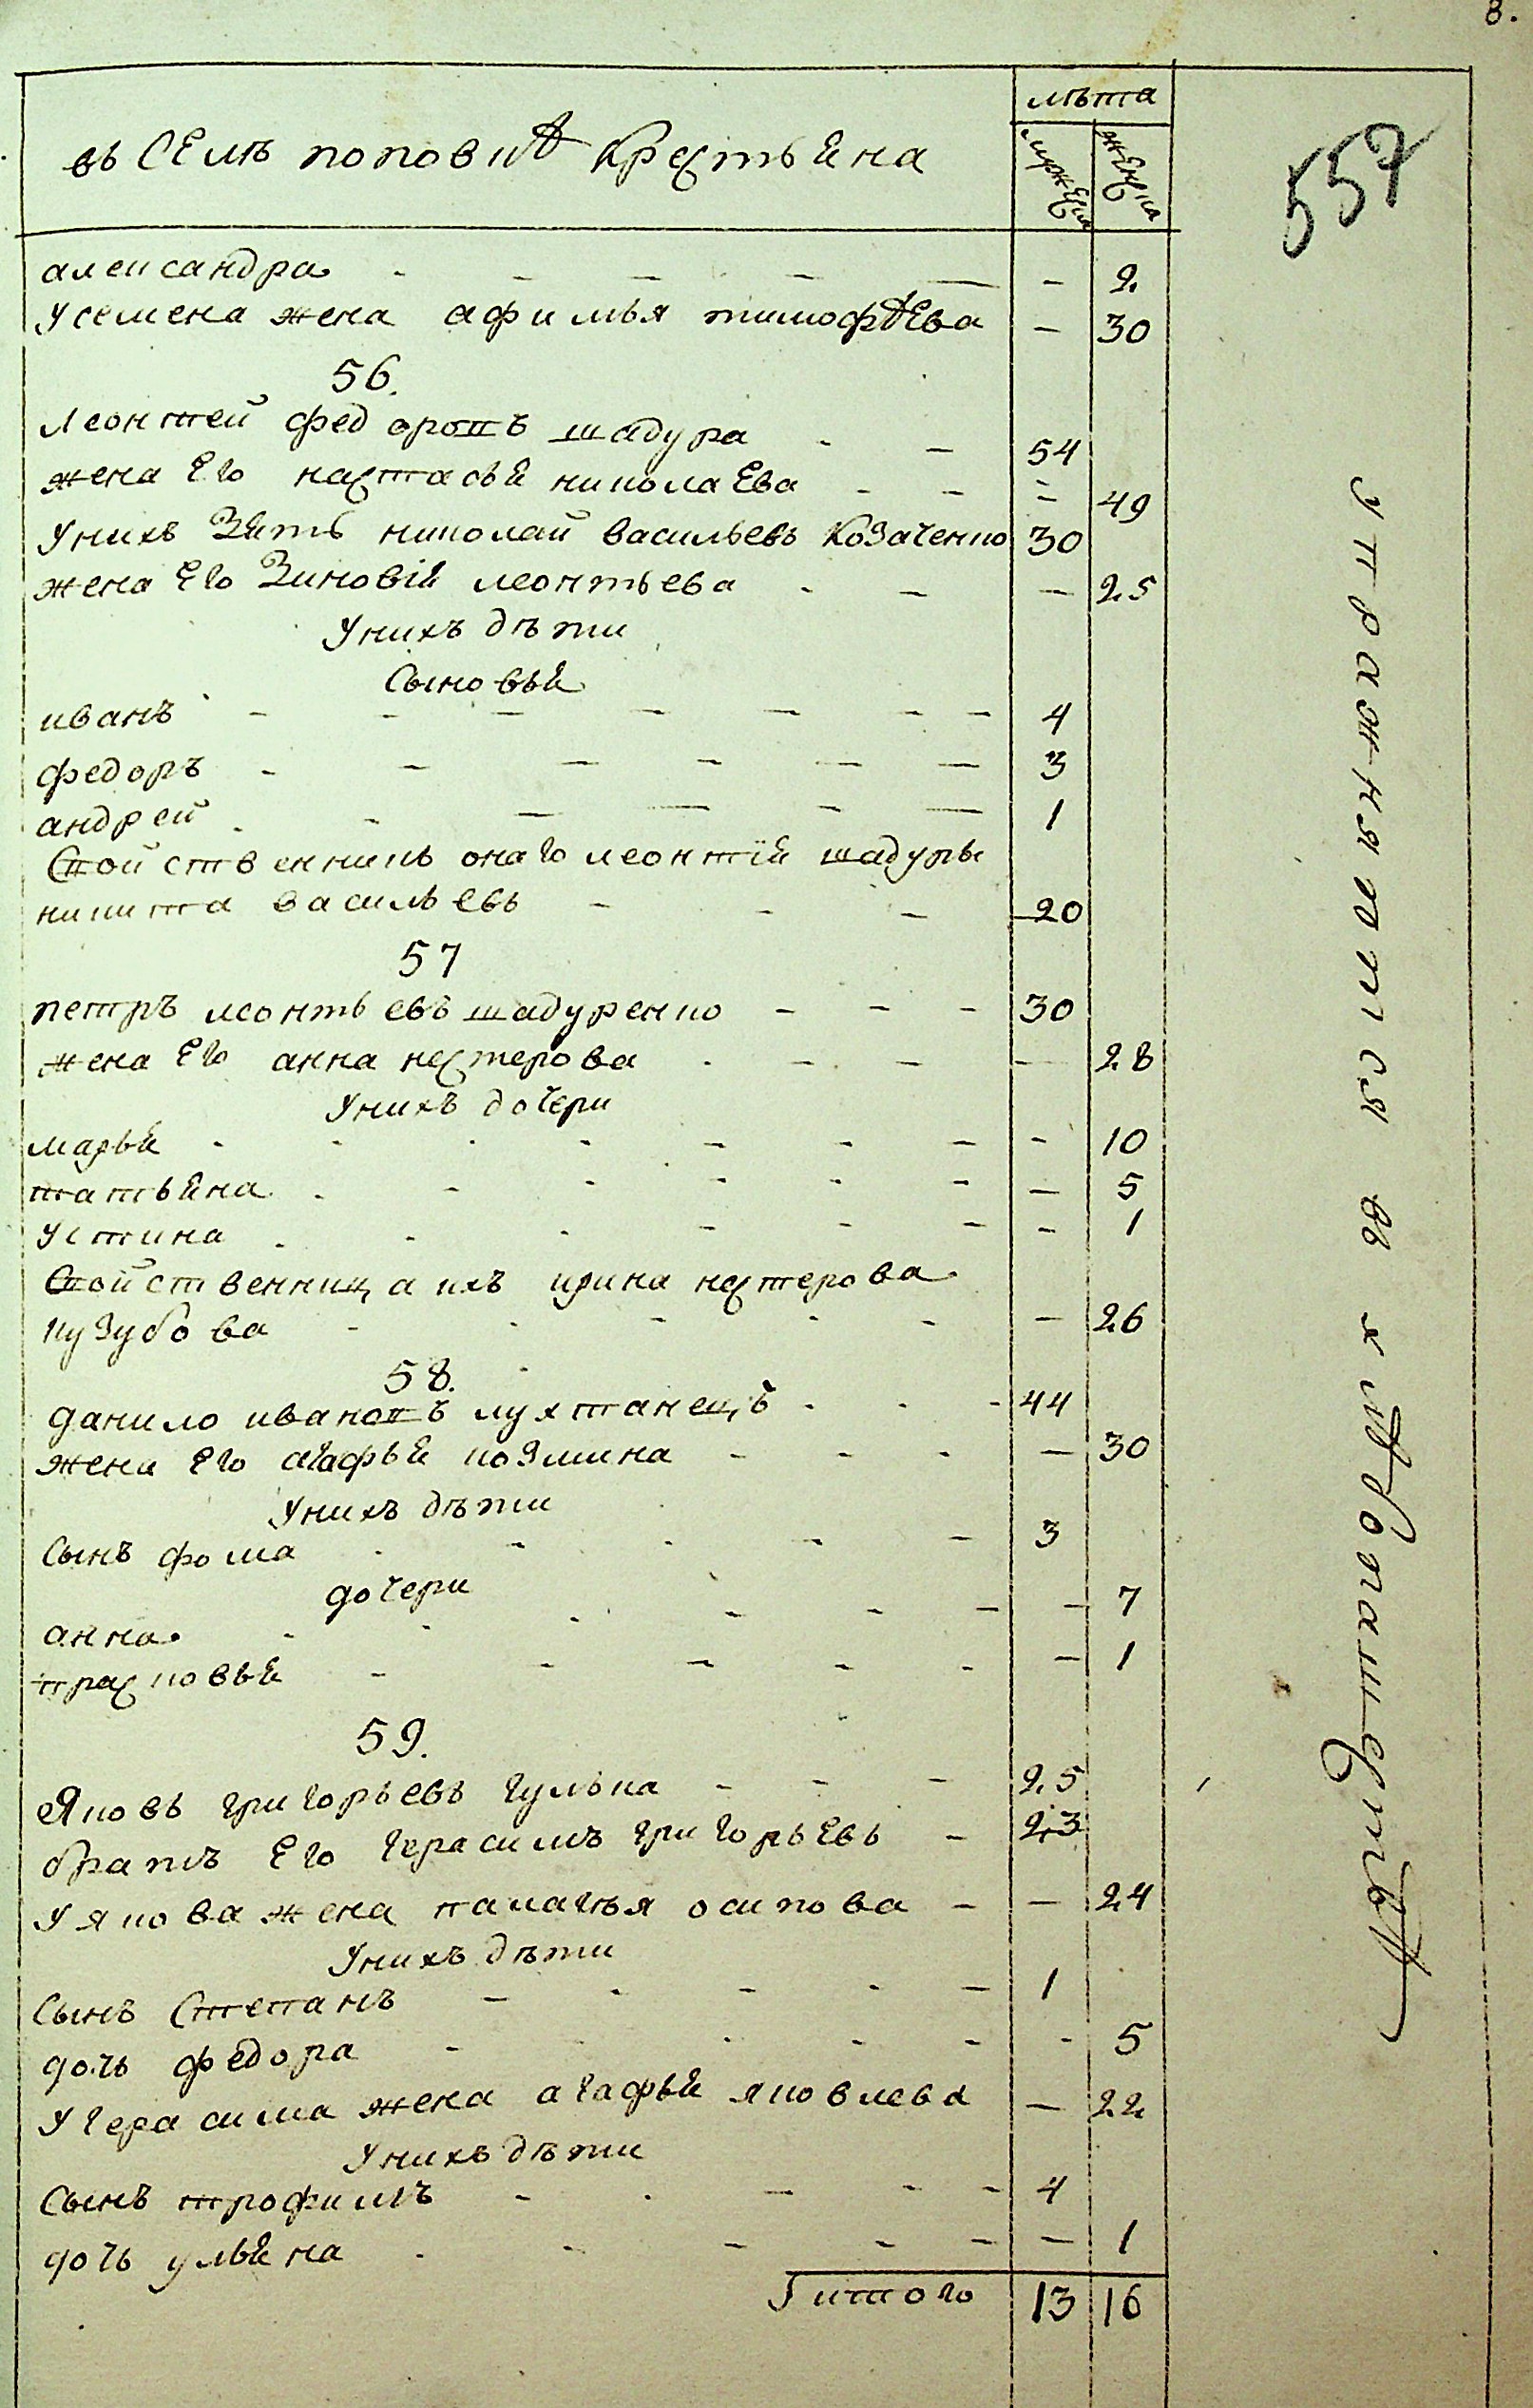 8.
лѣта
въ селѣ поповкѣ крестьяна
мужеска
женска
557
александра - 2
у семена жена афимья тимофѣева - 30
56.
леонтей федоровъ шадура 54
жена его настасья николаева - 49
у нихъ зять николай васильевъ козаченко 30
жена его зиновія леонтьева - 25
у нихъ дѣти
сыновья
иванъ 4
федоръ 3
андрей 1
свойственникъ онаго леонтія шадуры
никита васильевъ 20
57
петръ леонтьевъ шадуренко 30
жена его анна нестерова - 28
у нихъ дочери
марья - 10
татьяна - 5
устина - 1
свойственница ихъ ирина нестерова
кузубова - 26
58.
данило ивановъ лухтанецъ 44
жена его агафья козмина - 30
у нихъ дѣти
сынъ фома 3
дочери
анна - 7
прасковья - 1
59.
яковъ григорьевъ гулька 25
братъ его герасимъ григорьевъ 23
у якова жена палагѣя осипова - 24
у нихъ дѣти
сынъ степанъ 1
дочь федора - 5
у герасима жена агафья яковлева - 22
у нихъ дѣти
сынъ трофимъ 4
дочь ульяна - 1
итого 13 16
упражняемся въ хлѣбопашествѣ